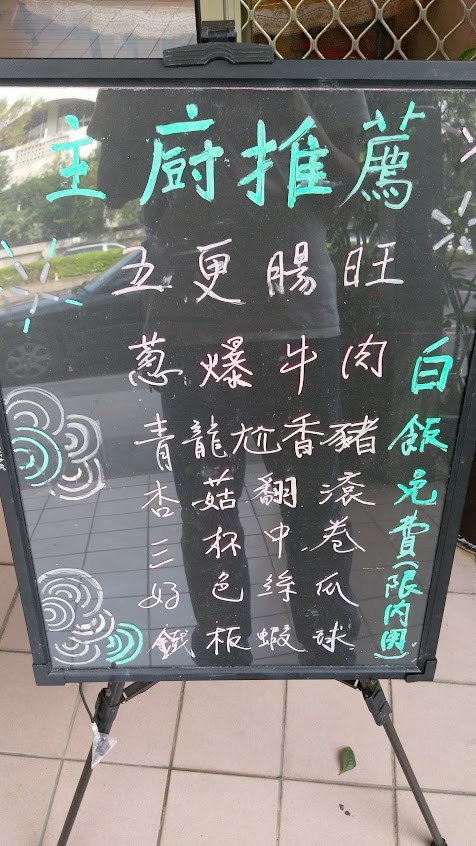 主廚推薦
五更腸旺
蔥爆牛肉
青龍尬香豬
杏菇翻滾
三杯中卷
好色絲瓜
鐵板蝦球
白飯免費(限內用)